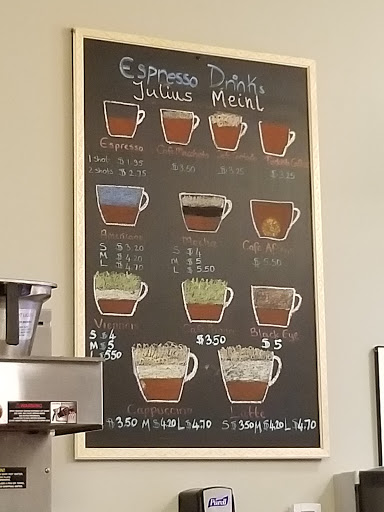 Espresso Drinks
Julius Meinl
Espresso
1 shot: $1.95
2 shots $2.75
$3.50
$3.75
$3.25
Americano
S $3.20
M $4.20
L $4.70
Mocha
S $4
M $5
L $5.50
Café
$5.50
Viennois
S $4
M $5
L $5.50
$3.50
Black Eye
$5
Cappuccino
$3.50 M $4.20 L $4.70
Latte
S $3.50 M $4.20 L $4.70
WARNING
Purell